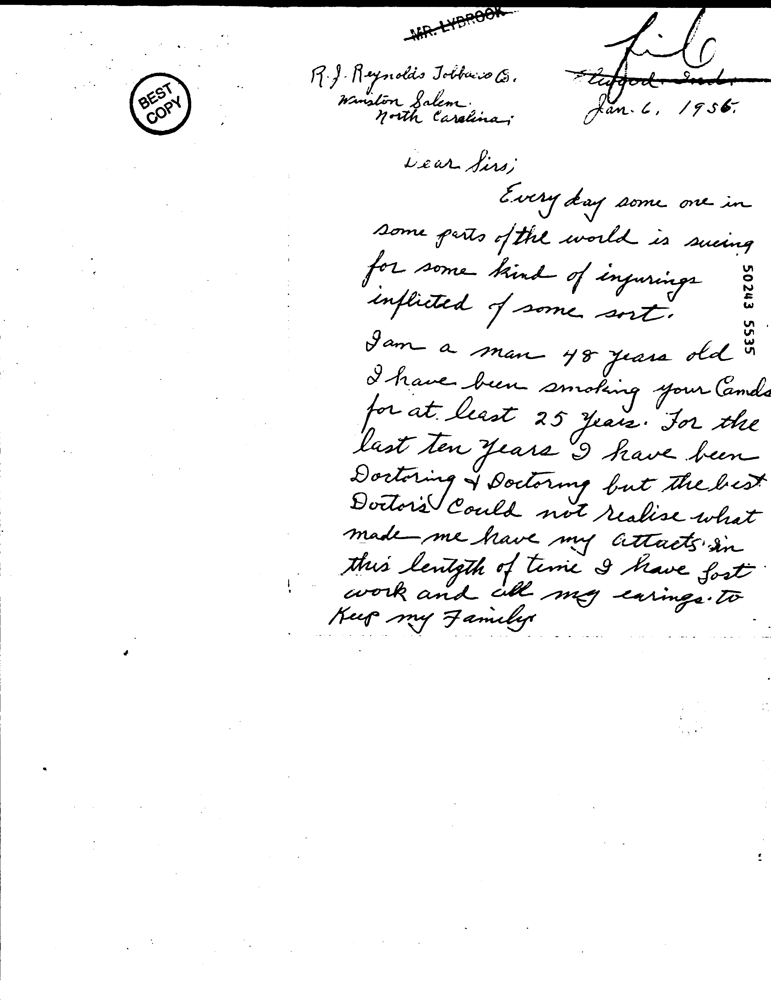 MR. LYBROOK
file
R. J. Reynolds Tobbacco Co.
Ind.
Winston Salem.
Jan. 6, 1956.
North Carolina;
BEST
COPY
Dear Sirs;
Every day some one in
some parts of the world is sueing
for some kind of injurings
inflicted of some sort.
50243 5535
I am a man 48 years old
I have been smoking your Camels
for at least 25 years. For the
last ten years I have been
Doctoring & Doctoring but the best
Doctors Could not realise what
made me have my attacts. in
this lentgth of time I have lost
work and all my earings to
Keep my Family